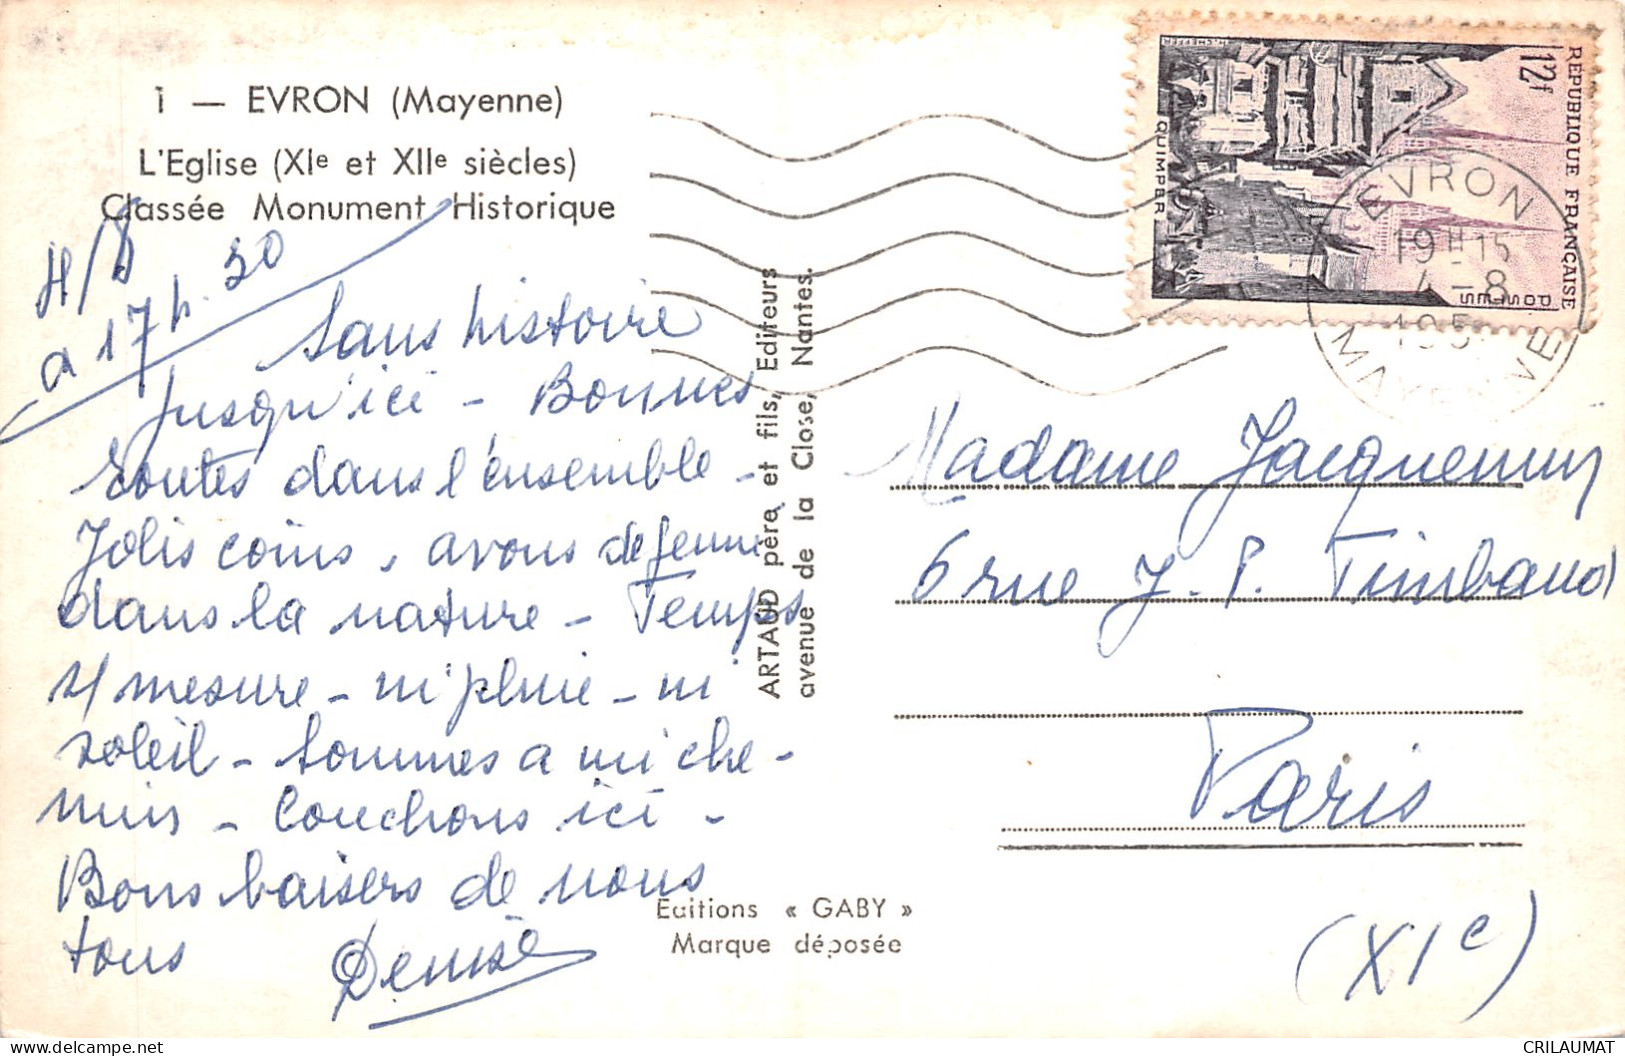 1 — EVRON (Mayenne)
L'Eglise (XIe et XIIe siècles)
Classée Monument Historique
4/8
a 17h.30
Sans histoire
jusqu'ici - Bonnes
routes dans l'ensemble -
Jolis coins, avons dejeuné
dans la nature - Temps
1/2 mesure - ni pluie - ni
soleil - Sommes a mi che-
min - Couchons ici -
Bons baisers de nous
tous
Denise
ARTAUD père et fils, Editeurs
avenue de la Close, Nantes.
Editions « GABY »
Marque déposée
REPUBLIQUE FRANÇAISE
12f
POSTES
QUIMPER
H. CHEFFER
EVRON
19H15
4-8
195
MAYENNE
Madame Jacquemin
6 rue J. P. Timbaud
Paris
(XIe)
CRILAUMAT